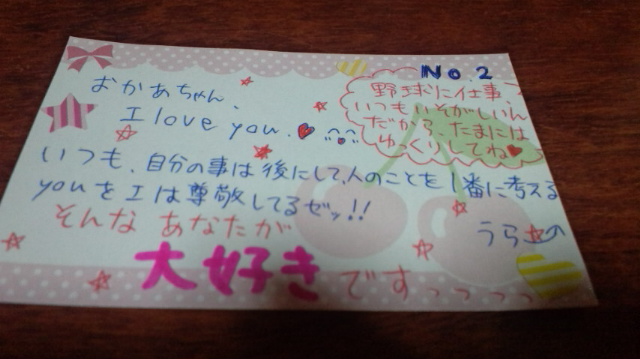 No.2
おかあちゃん、
I love you.
野球に仕事、
いつもいそがしいん
だから、たまには
ゆっくりしてね
いつも、自分の事は後にして、人のことを1番に考える
youをIは尊敬してるゼッ!!
そんなあなたが
大好きですっっっっ
うら